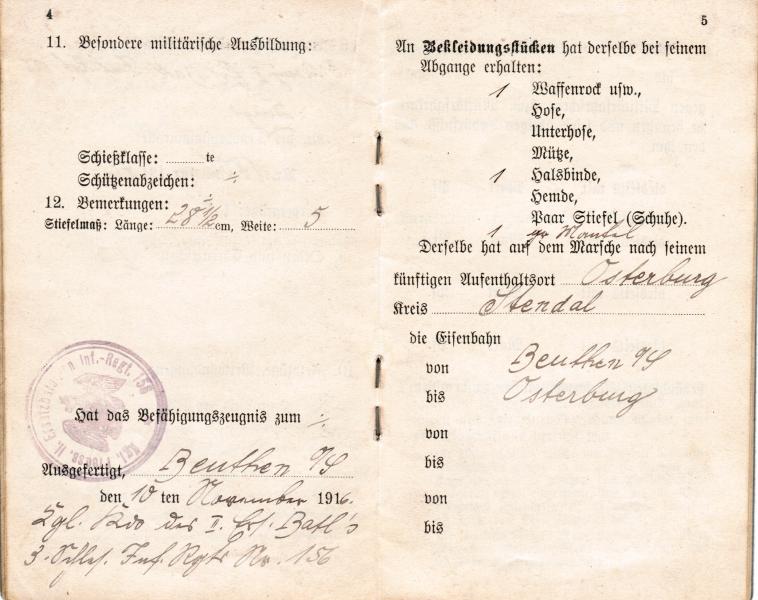 4
11. Besondere militärische Ausbildung:
Schießklasse: ........te
Schützenabzeichen: ·/·
12. Bemerkungen: ·/·
Stiefelmaß: Länge: 28 1/2 cm, Weite: 5
Kgl. Preuss. II. Ersatzbataillon Inf.-Regt. 156
Hat das Befähigungszeugnis zum ·/·
Ausgefertigt, Beuthen O/S
den 10 ten November 1916.
Kgl. Kdo des II. Ers. Batl's
3. Schles. Inf. Rgts Nr. 156
5
An Bekleidungsstücken hat derselbe bei seinem
Abgange erhalten:
1 Waffenrock usw.,
Hose,
Unterhose,
Mütze,
1 Halsbinde,
Hemde,
Paar Stiefel (Schuhe).
1 Mantel
Derselbe hat auf dem Marsche nach seinem
künftigen Aufenthaltsort Osterburg
Kreis Stendal
die Eisenbahn
von Beuthen O/S
bis Osterburg
von
bis
von
bis